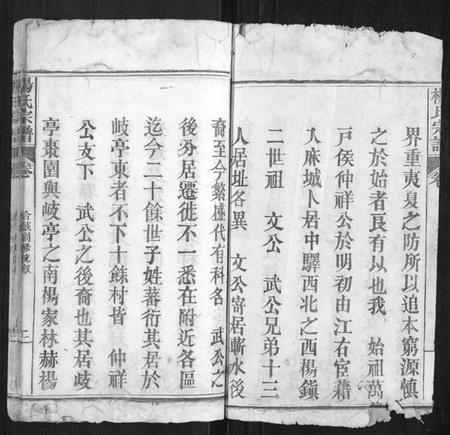 楊氏宗譜
卷
界重夷夏之防所以追本窮源慎
之於始者良有以也我　始祖萬
戸侯仲祥公於明初由江右宦籍
入麻城卜居中驛西北之西楊鎮
二世祖　文公　武公兄弟十三
人居址各異　文公寄居蘄水後
裔至今繁盛代有科名　武公之
後分居遷徙不一悉在附近各區
迄今二十餘世子姓蕃衍其居於
岐亭東者不下十餘村皆　仲祥
公支下　武公之後裔也其居歧
亭棗園與岐亭之南楊家林赫楊
楊氏宗譜
卷